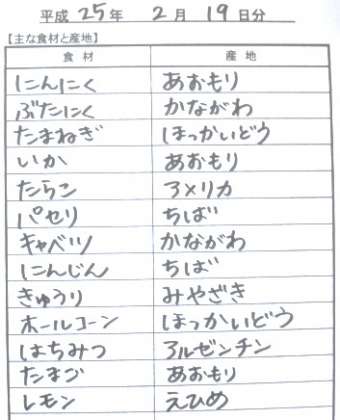 平成 25年 2月 19日分
【主な食材と産地】
食材 産地
にんにく あおもり
ぶたにく かながわ
たまねぎ ほっかいどう
いか あおもり
たらこ アメリカ
パセリ ちば
キャベツ かながわ
にんじん ちば
きゅうり みやざき
ホールコーン ほっかいどう
はちみつ アルゼンチン
たまご あおもり
レモン えひめ